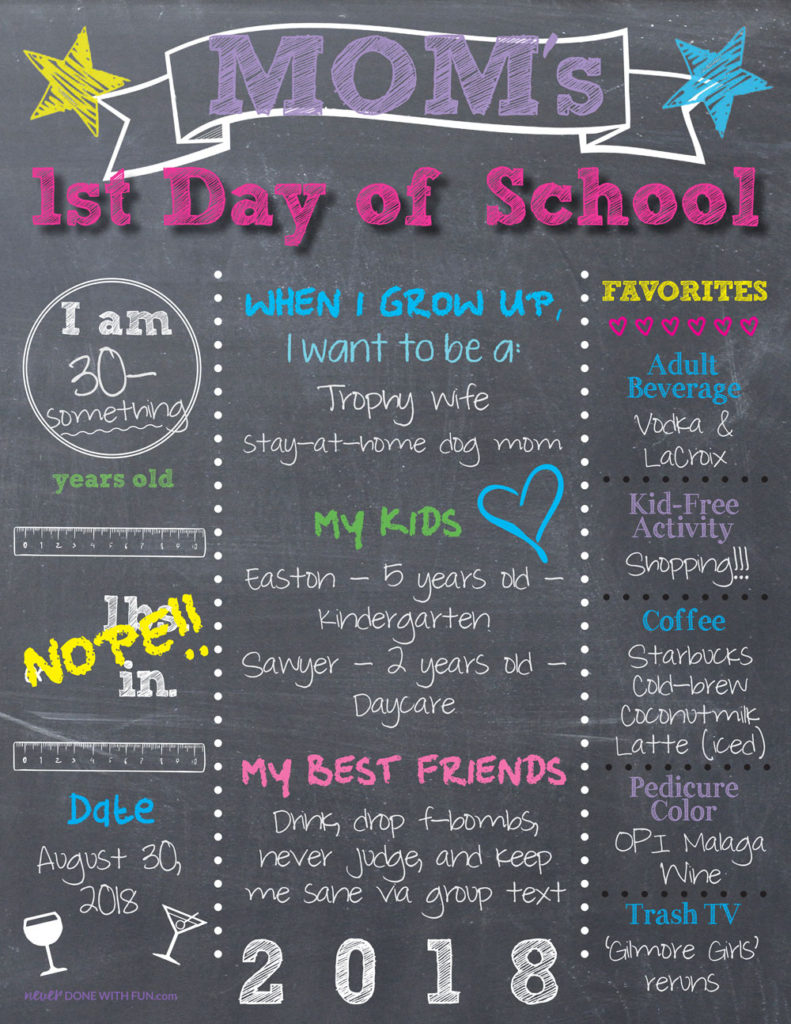 MOM's
1st Day of School
I am
30-
something
years old
0 1 2 3 4 5 6 7 8 9 10
lbs
NOPE!!
in.
0 1 2 3 4 5 6 7 8 9 10
Date
August 30,
2018
never DONE WITH FUN.com
WHEN I GROW UP,
I want to be a:
Trophy Wife
stay-at-home dog mom
MY KIDS
Easton - 5 years old -
Kindergarten
Sawyer - 2 years old -
Daycare
MY BEST FRIENDS
Drink, drop f-bombs,
never judge, and keep
me sane via group text
2018
FAVORITES
Adult
Beverage
Vodka &
LaCroix
Kid-Free
Activity
Shopping!!!
Coffee
Starbucks
Cold-brew
Coconutmilk
Latte (iced)
Pedicure
Color
OPI Malaga
Wine
Trash TV
'Gilmore Girls'
reruns